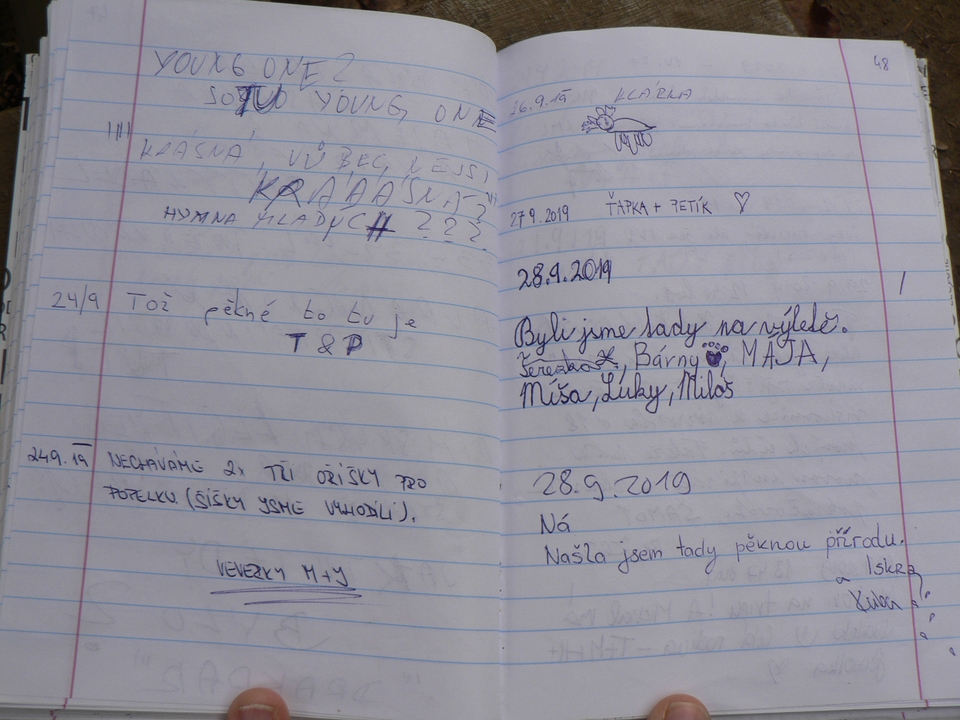 YOUNG ONE?
SOTU YOUNG ONE
KRÁSNÁ, VŮBEC NEJSI
KRÁÁÁÁSNÁ?
HYMNA MLADÝCH ???
24/9 Tož pěkné to tu je
T & P
24.9.19 NECHÁVÁME 2x TŘI OŘÍŠKY PRO
POPELKU (ŠIŠKY JSME VYHODILI).
VEVERKY M+J
48
26.9.19 KLÁRKA
27.9.2019 ŤAPKA + PETÍK ♡
28.9.2019
Byli jsme tady na výletě.
Bárny, MÁJA,
Míša, Lúky, Miloš
28.9.2019
Ná
Našla jsem tady pěknou přírodu.
a Iskra